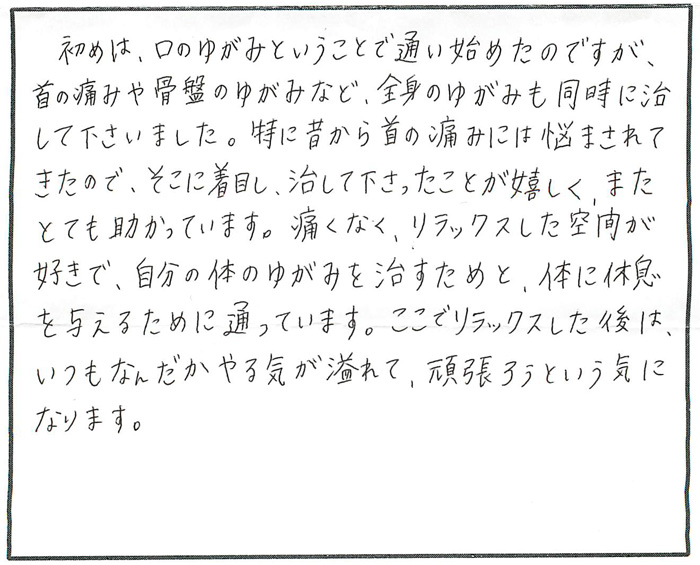 初めは、口のゆがみということで通い始めたのですが、
首の痛みや骨盤のゆがみなど、全身のゆがみも同時に治
して下さいました。特に昔から首の痛みには悩まされて
きたので、そこに着目し、治して下さったことが嬉しく、また
とても助かっています。痛くなく、リラックスした空間が
好きで、自分の体のゆがみを治すためと、体に休息
を与えるために通っています。ここでリラックスした後は、
いつもなんだかやる気が溢れて、頑張ろうという気に
なります。